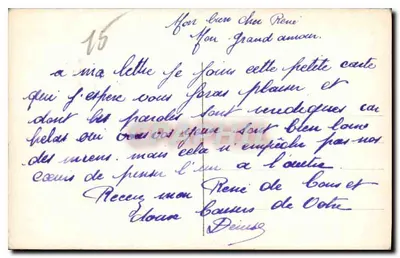 15
Mon bien cher René
Mon grand amour.
a ma lettre je joins cette petite carte
qui j'espere vous feras plaisir et
dont les paroles sont veridiques car
helas oui vos yeux sont bien loins
des miens. mais cela n'empeche pas nos
cœurs de penser l'un a l'autre
Recevez mon René de bons et
doux baisers de Votre
Denise